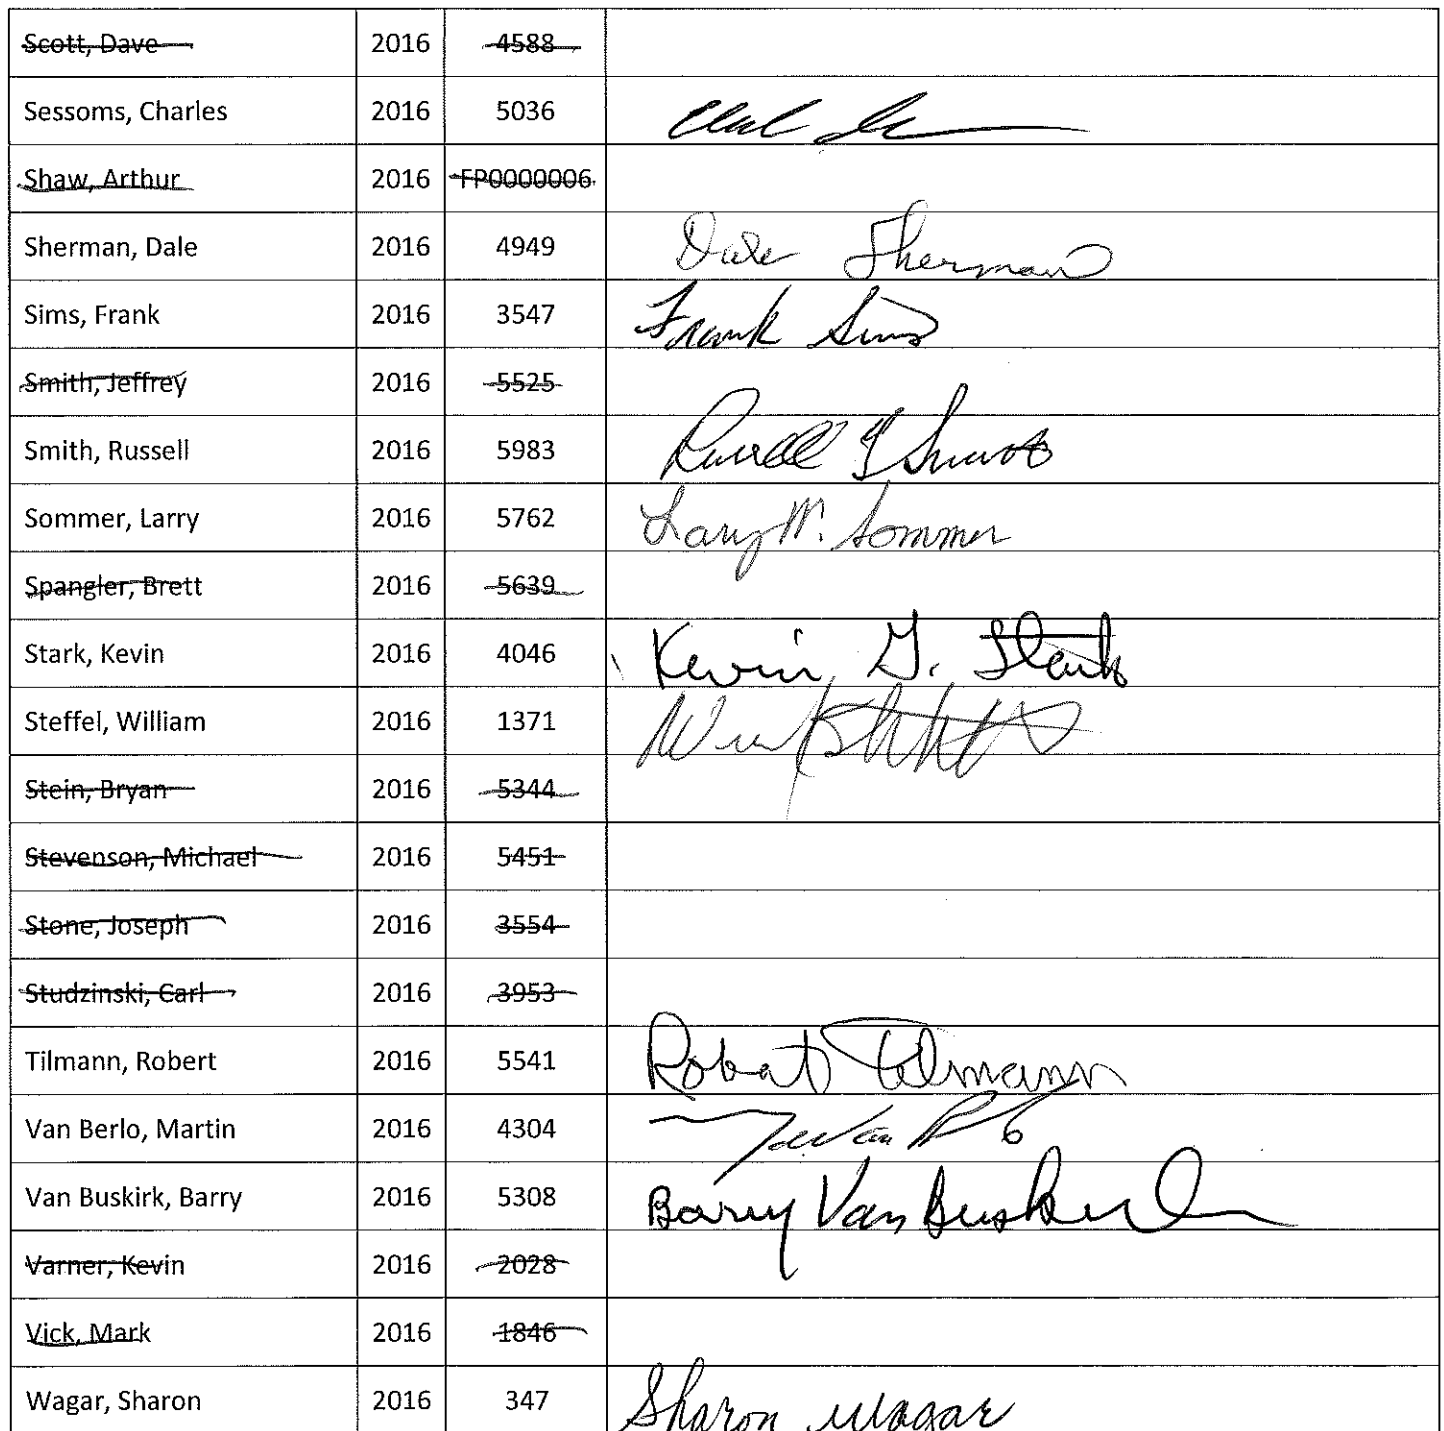 Scott, Dave 2016 4588
Sessoms, Charles 2016 5036
Shaw, Arthur 2016 FP0000006
Sherman, Dale 2016 4949 Dale Sherman
Sims, Frank 2016 3547 Frank Sims
Smith, Jeffrey 2016 5525
Smith, Russell 2016 5983 Russell Smith
Sommer, Larry 2016 5762 Larry W. Sommer
Spangler, Brett 2016 5639
Stark, Kevin 2016 4046 Kevin G. Stark
Steffel, William 2016 1371
Stein, Bryan 2016 5344
Stevenson, Michael 2016 5451
Stone, Joseph 2016 3554
Studzinski, Carl 2016 3953
Tilmann, Robert 2016 5541 Robert Tilmann
Van Berlo, Martin 2016 4304 Van
Van Buskirk, Barry 2016 5308 Barry Van Buskirk
Varner, Kevin 2016 2028
Vick, Mark 2016 1846
Wagar, Sharon 2016 347 Sharon Wagar